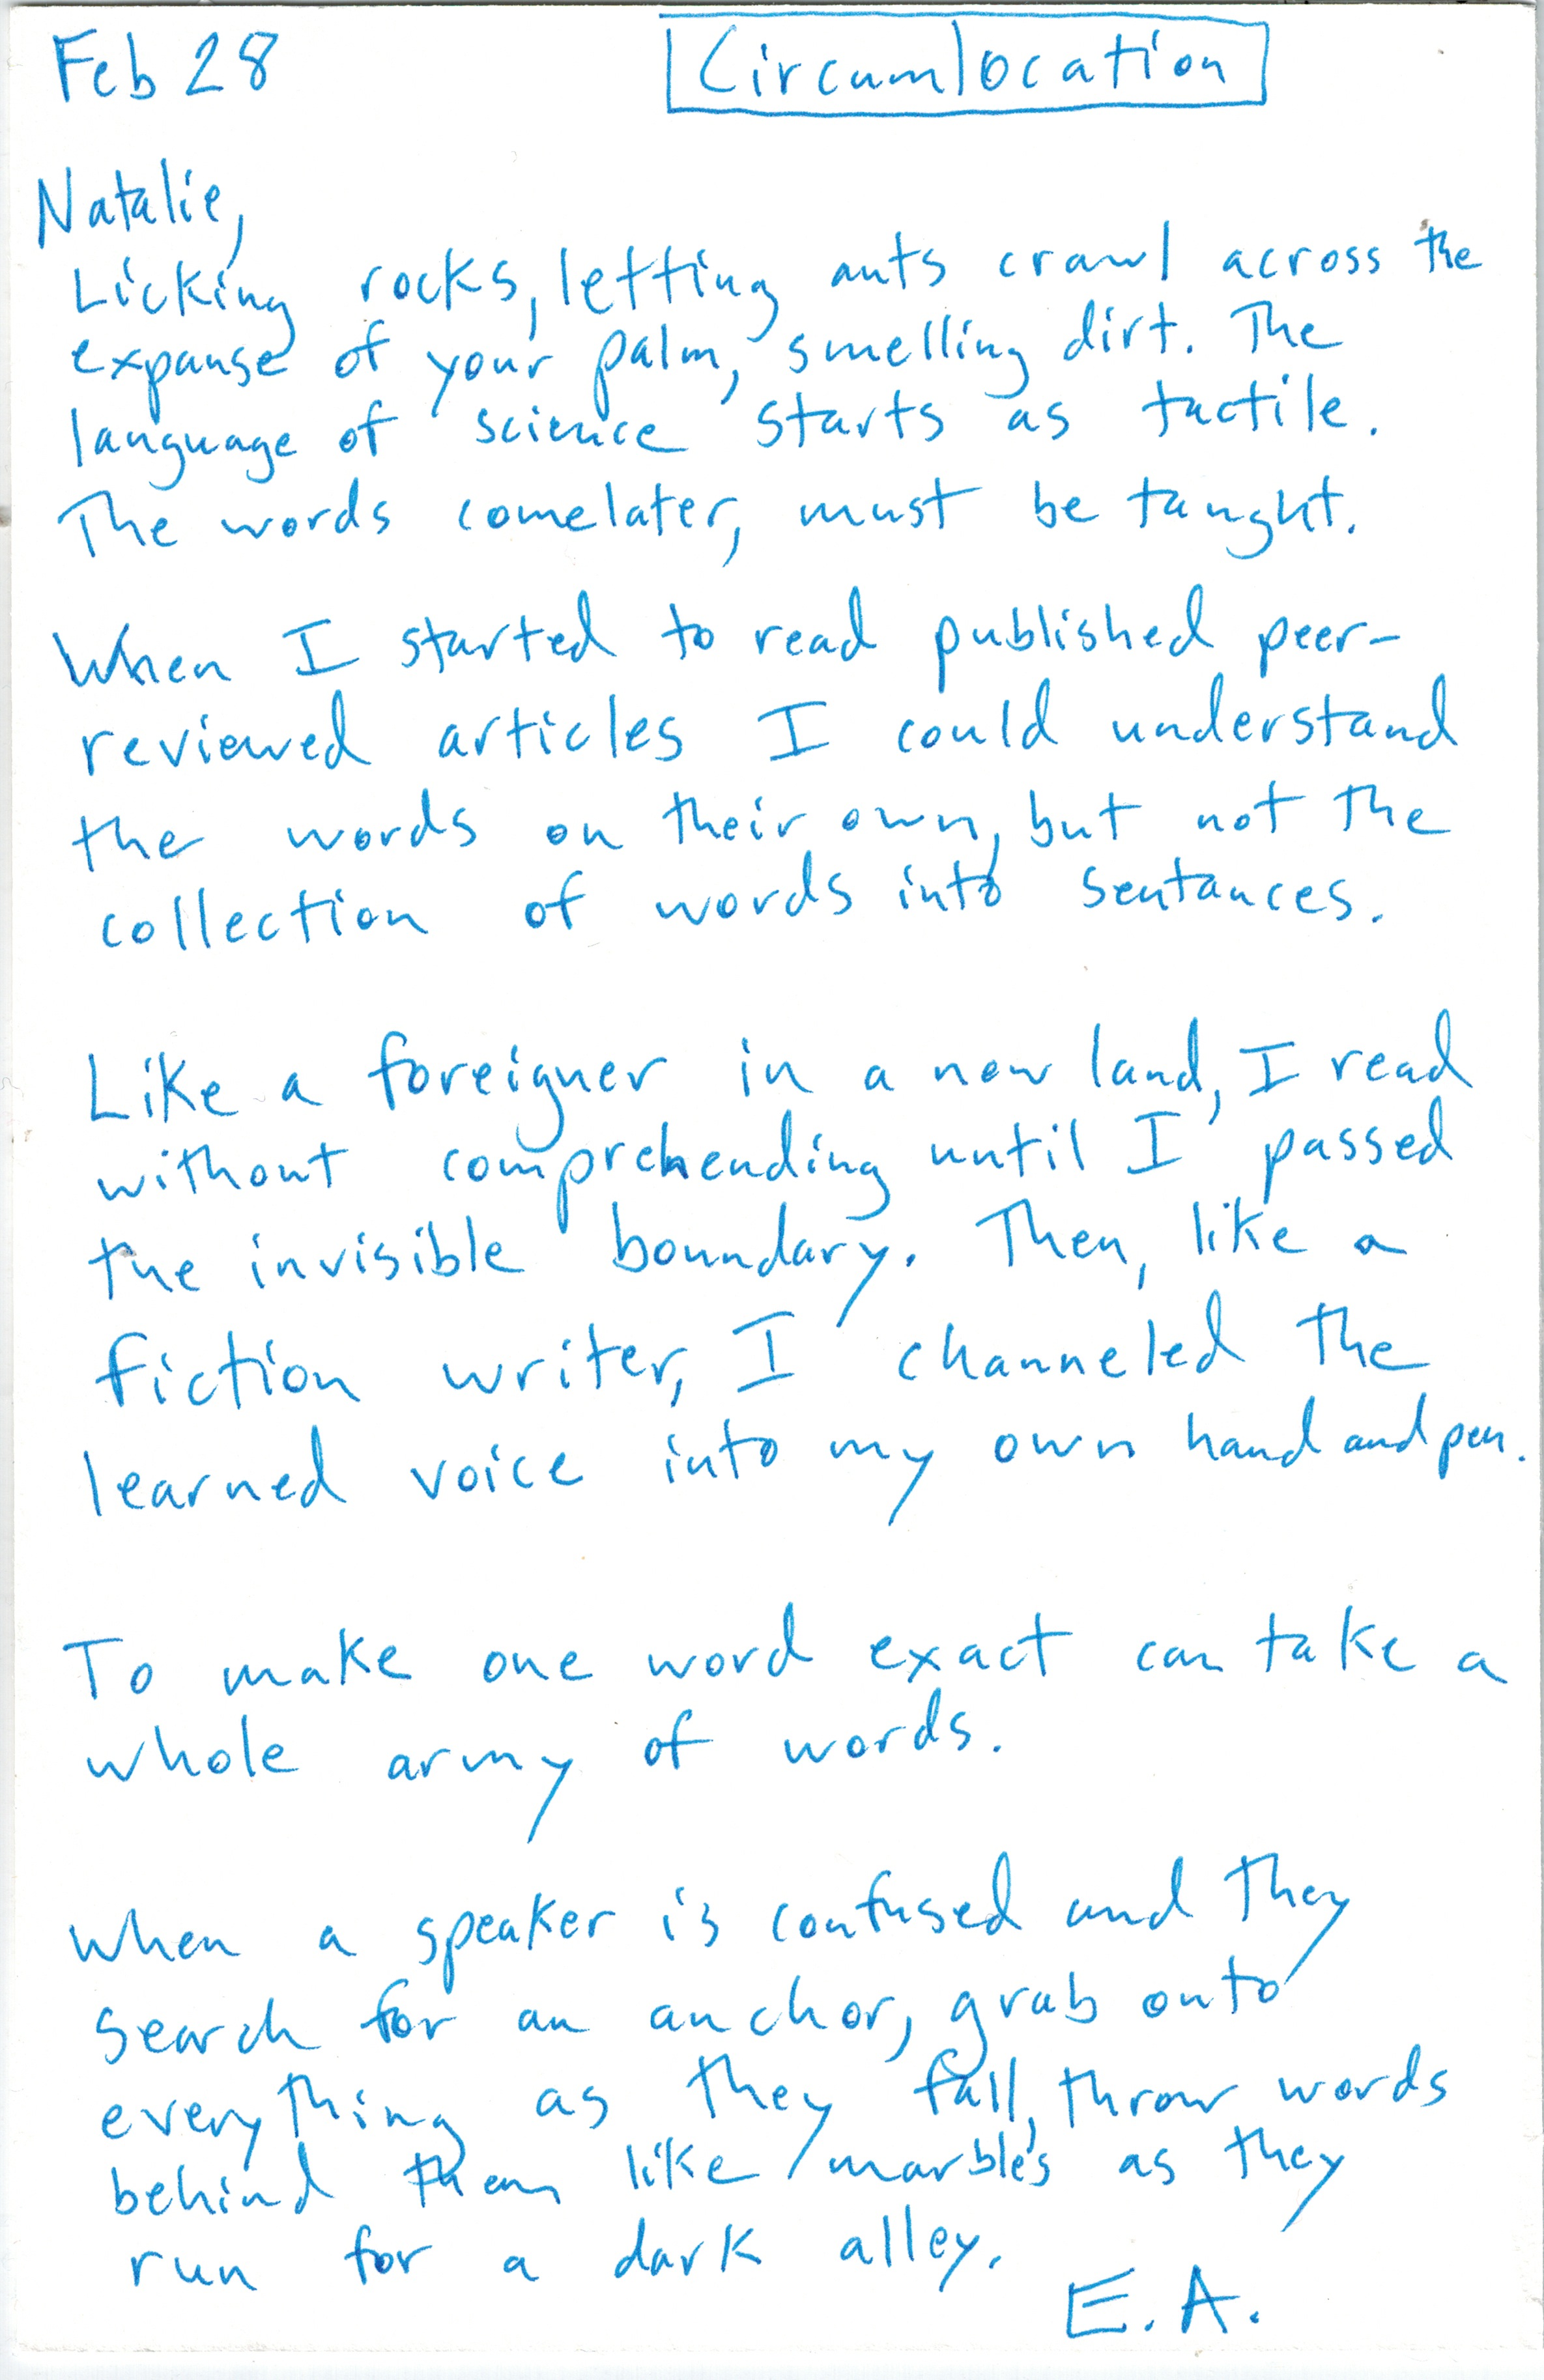 Feb 28
Circumlocation
Natalie,
Licking rocks, letting ants crawl across the
expanse of your palm, smelling dirt. The
language of science starts as tactile.
The words come later, must be taught.
When I started to read published peer-
reviewed articles I could understand
the words on their own, but not the
collection of words into sentances.
Like a foreigner in a new land, I read
without comprehending until I passed
the invisible boundary. Then, like a
fiction writer, I channeled the
learned voice into my own hand and pen.
To make one word exact can take a
whole army of words.
When a speaker is confused and they
search for an anchor, grab onto
everything as they fall, throw words
behind them like marbles as they
run for a dark alley.
E.A.